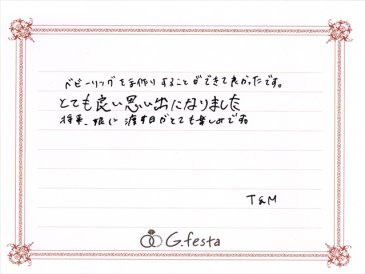 ベビーリングを手作りすることができて良かったです。
とても良い思い出になりました
将来、娘に渡す日がとても楽しみです。
T&M
G.festa